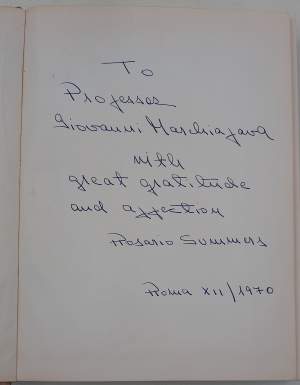 To
Professor
Giovanni Marchiafava
with
great gratitude
and affection
Rosario Summers
Roma XII/1970